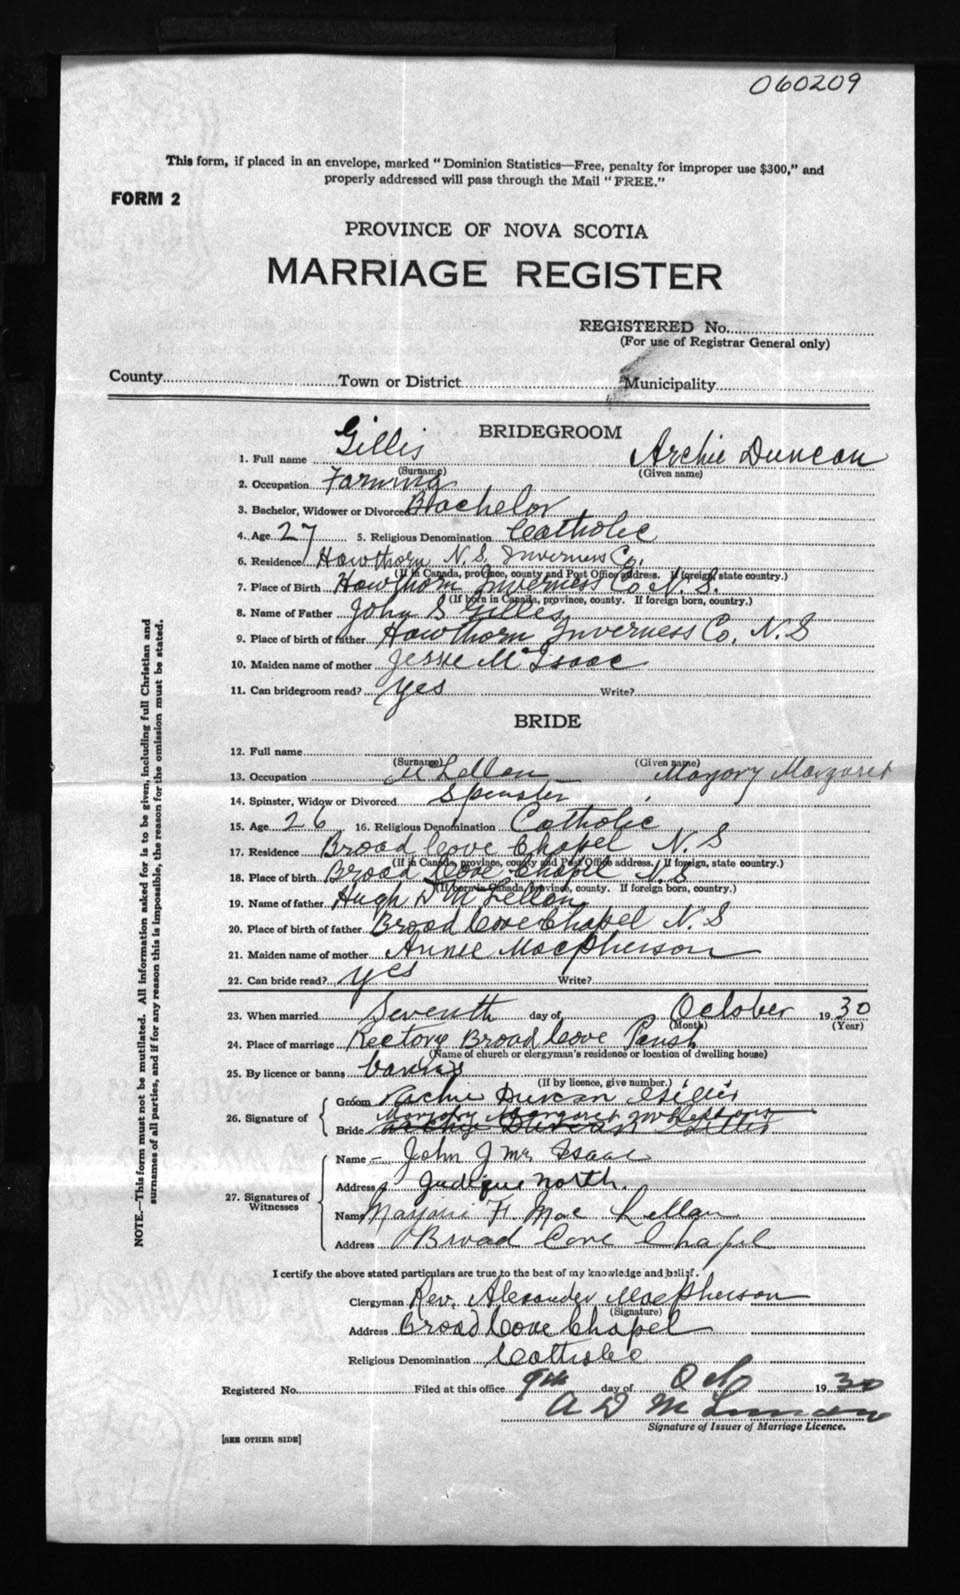 060209
This form, if placed in an envelope, marked "Dominion Statistics—Free, penalty for improper use $300," and
properly addressed will pass through the Mail "FREE."
FORM 2
PROVINCE OF NOVA SCOTIA
MARRIAGE REGISTER
REGISTERED No.
(For use of Registrar General only)
County Town or District Municipality
BRIDEGROOM
1. Full name Gillis Archie Duncan
(Surname) (Given name)
2. Occupation Farming
3. Bachelor, Widower or Divorced Bachelor
4. Age 27 5. Religious Denomination Catholic
6. Residence Hawthorn N.S. Inverness Co.
(If in Canada, province, county and Post Office address. If foreign, state country.)
7. Place of Birth Hawthorn Inverness Co N.S.
(If born in Canada, province, county. If foreign born, country.)
8. Name of Father John S Gillis
9. Place of birth of father Hawthorn Inverness Co. N.S
10. Maiden name of mother Jessie McIsaac
11. Can bridegroom read? yes Write?
BRIDE
12. Full name
(Surname) (Given name)
13. Occupation McLellan Margory Margaret
14. Spinster, Widow or Divorced Spinster
15. Age 26 16. Religious Denomination Catholic
17. Residence Broad Cove Chapel N.S
(If in Canada, province, county and Post Office address. If foreign, state country.)
18. Place of birth Broad Cove Chapel N.S
(If born in Canada, province, county. If foreign born, country.)
19. Name of father Hugh D McLellan
20. Place of birth of father Broad Cove Chapel N.S
21. Maiden name of mother Annie MacPherson
22. Can bride read? yes Write?
23. When married Seventh day of October 1930
(Month) (Year)
24. Place of marriage Rectory Broad Cove Parish
(Name of church or clergyman's residence or location of dwelling house)
25. By licence or banns banns
(If by licence, give number.)
26. Signature of
Groom Archie Duncan Gillis
Bride Margaret
27. Signatures of Witnesses
Name John J Mc Isaac
Address Judique North.
Name Marjorie F. Mac Lellan
Address Broad Cove Chapel
I certify the above stated particulars are true to the best of my knowledge and belief.
Clergyman Rev. Alexander MacPherson
(Signature)
Address Broad Cove Chapel
Religious Denomination Catholic
Registered No. Filed at this office 9th day of Oct 1930
A D Mc
Signature of Issuer of Marriage Licence.
[SEE OTHER SIDE]
NOTE.—This form must not be mutilated. All information asked for is to be given, including full Christian and
surnames of all parties, and if for any reason this is impossible, the reason for the omission must be stated.